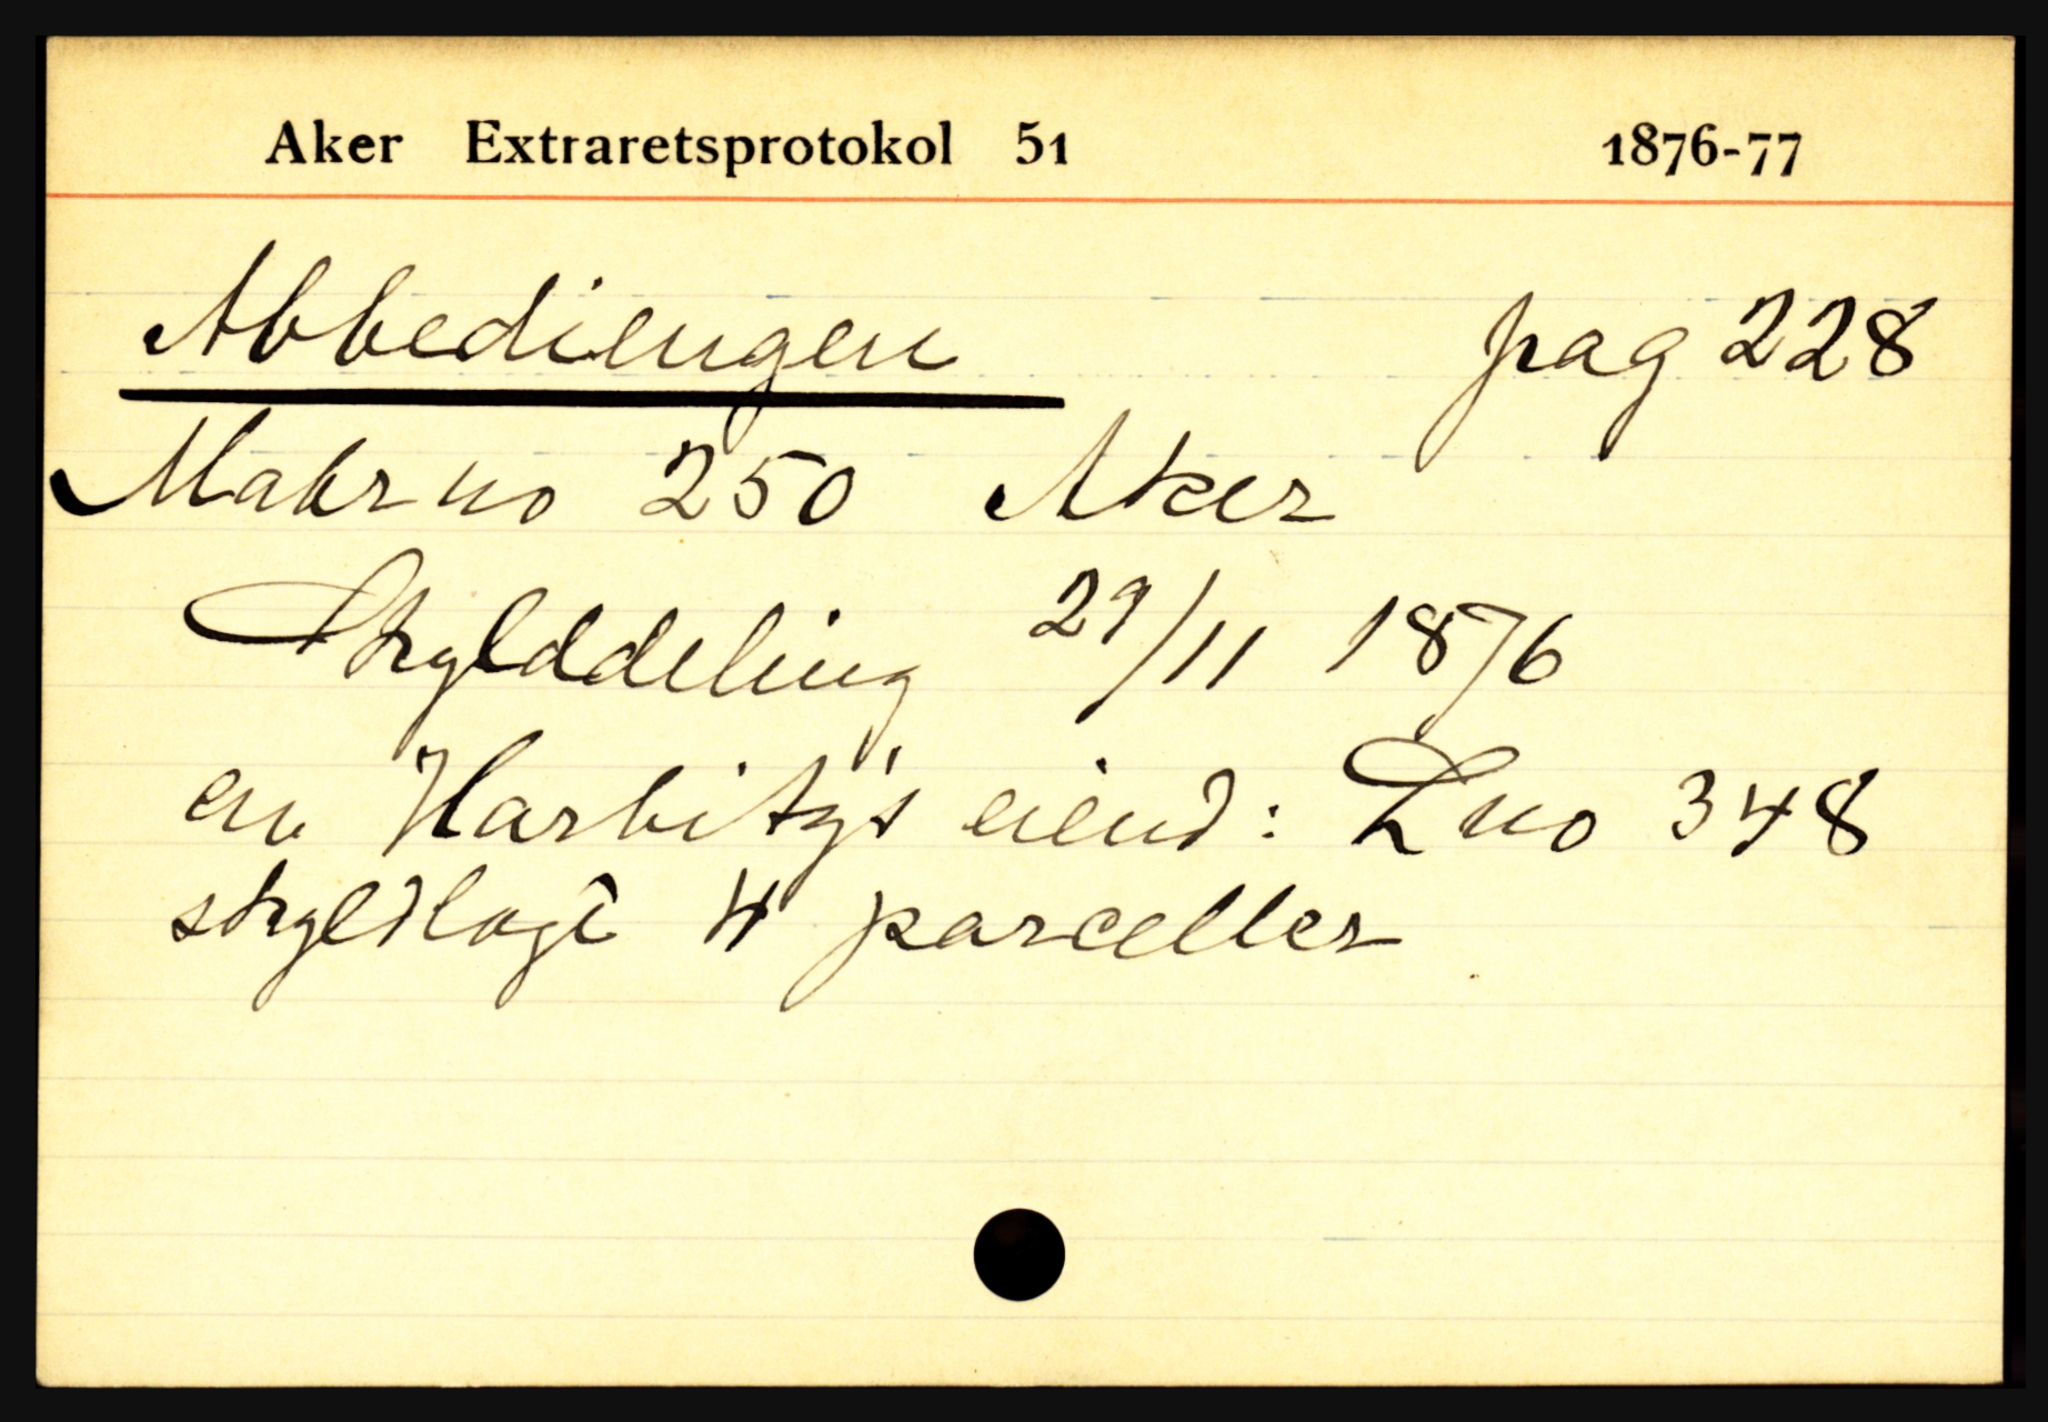 Aker Extraretsprotokol 51 1876-77
Abbediengen pag 228
Matr no 250 Aker
Skylddeling 29/11 1876
en Harbitz's eiend: Lno 348
skyldlagt 4 parceller